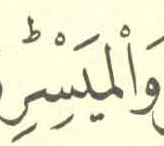 وَالْمَيْسِرِؕ